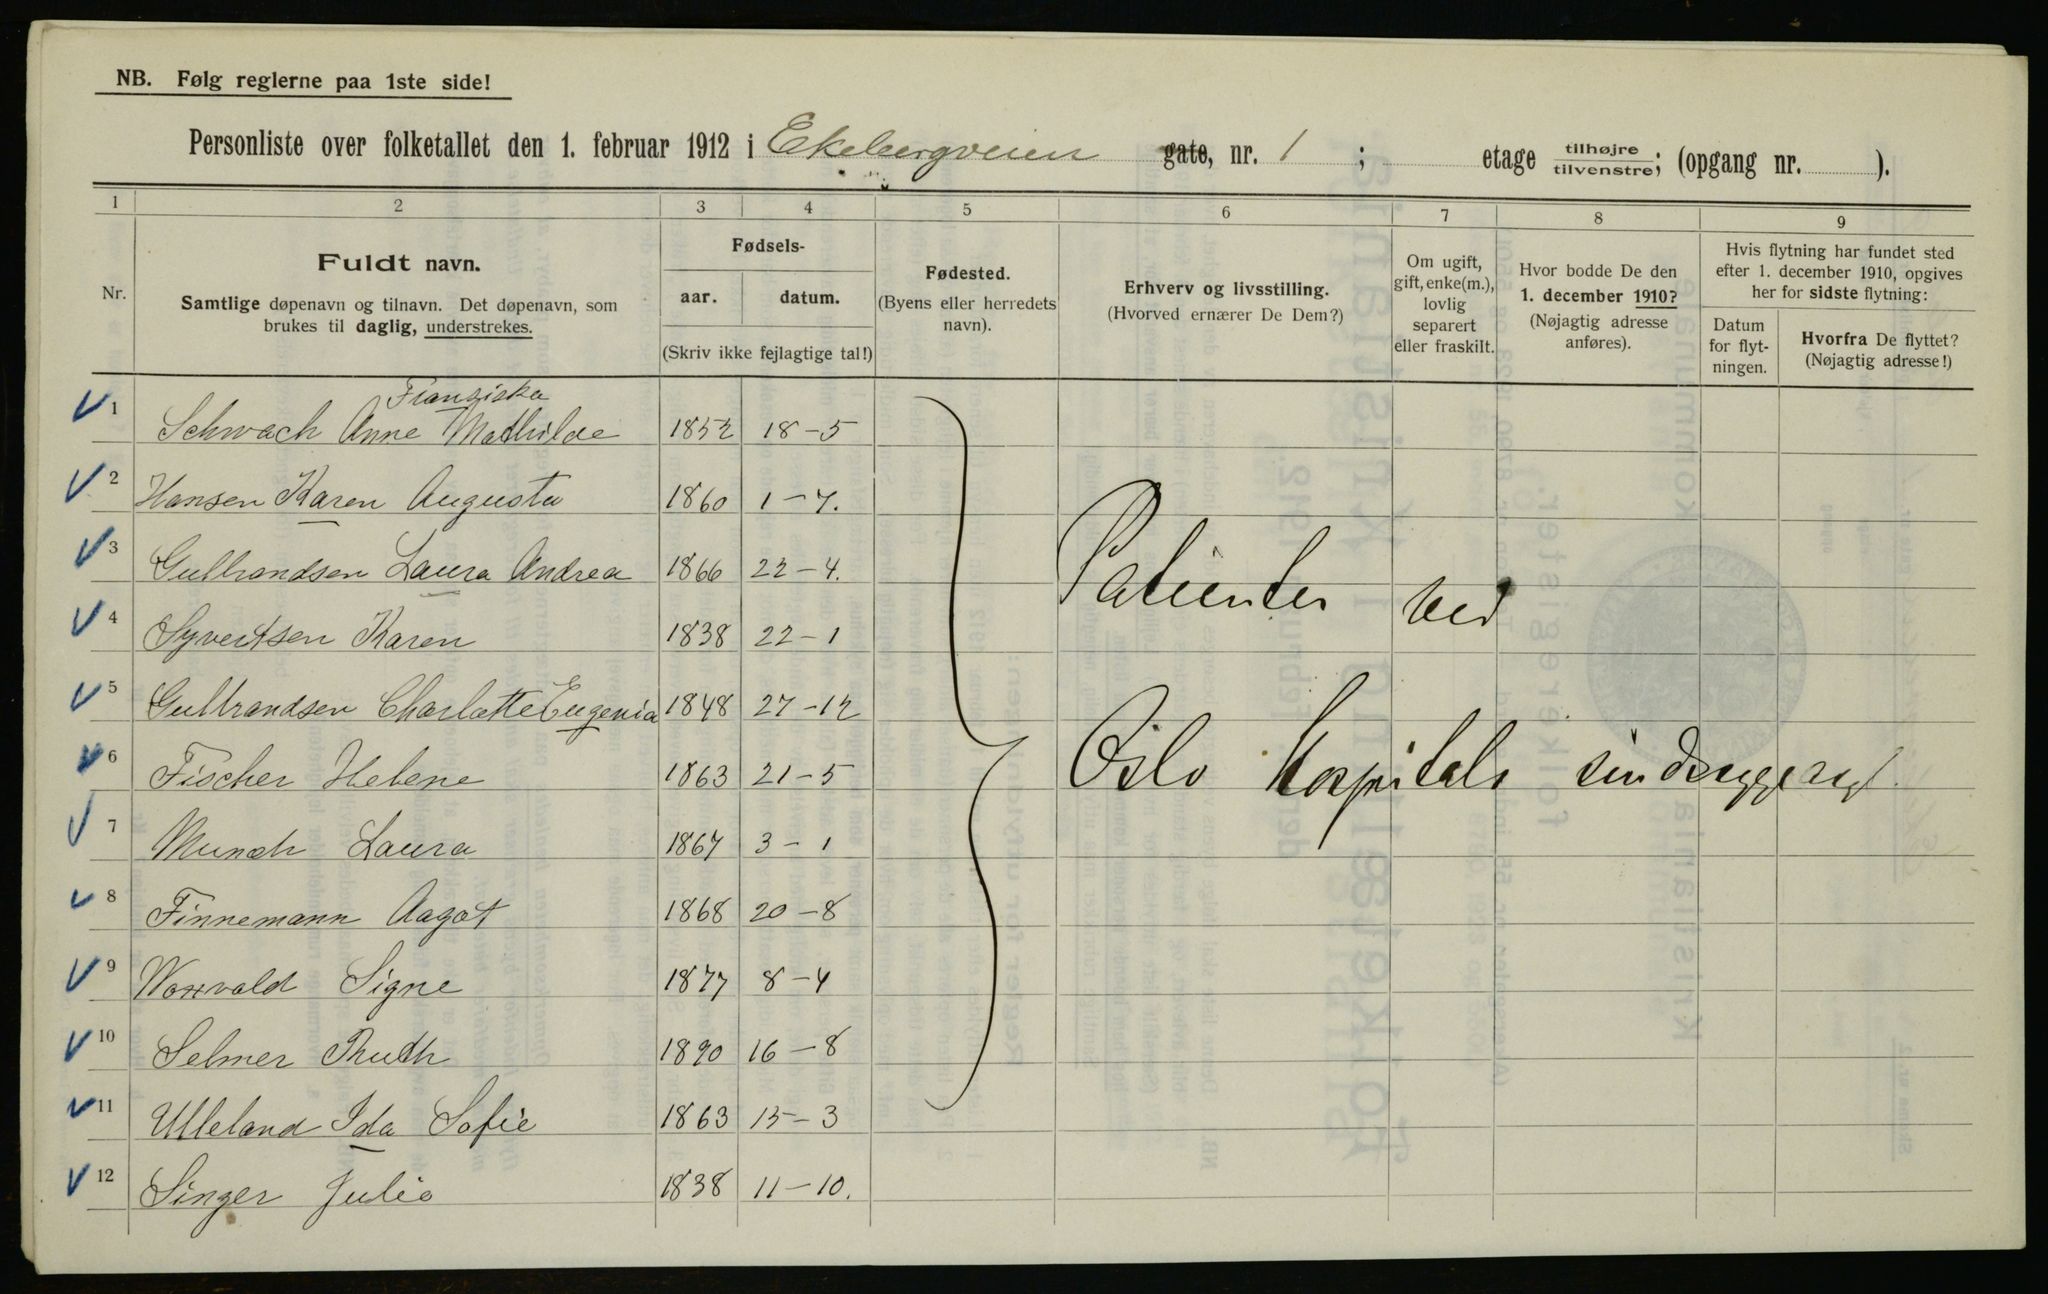 NB. Følg reglerne paa 1ste side!
Personliste over folketallet den 1. februar 1912 i Ekebergveien gate, nr. 1 ; etage tilhøjre tilvenstre; (opgang nr. ).
1 2 3 4 5 6 7 8 9
Nr.
Fuldt navn.
Samtlige døpenavn og tilnavn. Det døpenavn, som
brukes til daglig, understrekes.
Fødsels-
aar. datum.
(Skriv ikke fejlagtige tal!)
Fødested.
(Byens eller herredets
navn).
Erhverv og livsstilling.
(Hvorved ernærer De Dem?)
Om ugift,
gift, enke(m.),
lovlig
separert
eller fraskilt.
Hvor bodde De den
1. december 1910?
(Nøjagtig adresse
anføres).
Hvis flytning har fundet sted
efter 1. december 1910, opgives
her for sidste flytning:
Datum
for flyt-
ningen.
Hvorfra De flyttet?
(Nøjagtig adresse!)
Franziska
1 Schwach Anne Mathilde 1852 18-5
2 Hansen Karen Augusta 1860 1-7.
3 Gulbrandsen Laura Andrea 1866 22-4.
4 Syvertsen Karen 1838 22-1
5 Gulbrandsen Charlotte Eugenia 1848 27-12
6 Fischer Helene 1863 21-5
7 Munch Laura 1867 3-1
8 Finnemann Aagot 1868 20-8
9 Signe 1877 8-4
10 Selmer Ruth 1890 16-8
11 Ulleland Ida Sofie 1863 15-3
12 Singer Julie 1838 11-10.
Patienter ved
Oslo Hospitals sindssygeasyl.